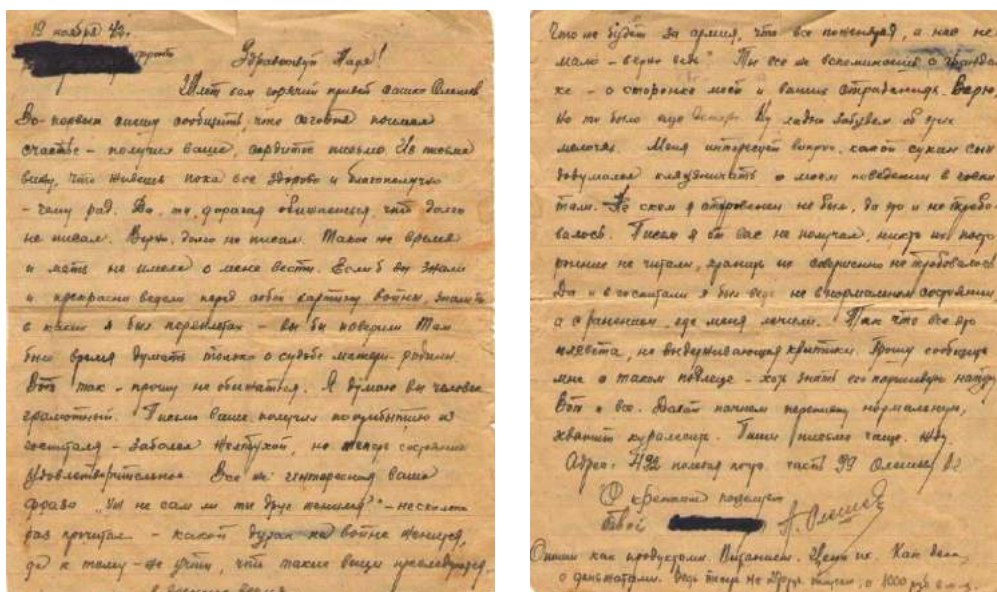 19 ноября 42.
Здравствуй Надя!
Шлет вам горячий привет Сашко Олешев
Во-первых спешу сообщить, что сегодня поймал
счастье - получил ваше, сердитое письмо. Из письма
вижу, что живешь пока все здорово и благополучно
- чему рад. Да, ты, дорогая обижаешься, что долго
не писал. Верно, долго не писал. Такое же время
и мать не имела о мене вести. Если б вы знали
и прекрасно видели перед собой картину войны, знали б
в каких я был переплетах - вы бы поверили Там
было время думать только о судьбе матери-родины.
Вот так - прошу не обижаться. Я думаю вы человек
грамотный Письмо ваше получил по прибытию из
госпиталя - заболел желтухой, но теперь состояние
удовлетворительное Все же интересная ваша
фраза "Уж не сам ли ты друг женился" - несколько
раз прочитал - какой дурак на войне женится,
да к тому-же учти, что такие вещи преследуются
в военное время
Что же будет за армия, что все поженятся, а нас не
мало - верно ведь" Ты все же вспоминаешь о
ке - о сторонке моей и ваших страданиях. Верю,
Но то было еще Ну ладно забудем об этих
мелочах. Меня интересует вопрос, какой сукин сын
додумался кляузничать о моем поведении в госпи
тале. Не с кем я откровенен не был, да это и не требо-
валось. Писем я от вас не получал, никто их посто
ронние не читали, границы не совершенно не требовалось
Да и в госпитале я был ведь не в нормальном состоянии,
а с ранением, где меня лечили. Так что все это
клевета, не выдерживающая критики. Прошу сообщить
мне о таком подлеце - хоть знать его паршивую натуру
Вот и все. Давай начнем переписку нормальную,
хватит куралесить. Пиши письма чаще. Жду.
Адрес: 492 полевая почт. часть 99 Олешеву
С крепким поцелуем
твой А. Олешев
Опиши как продуктами. Питанием. Цены их. Как дела
с деньжатами. Ведь теперь не получаю, а 1000 руб в м-ц.